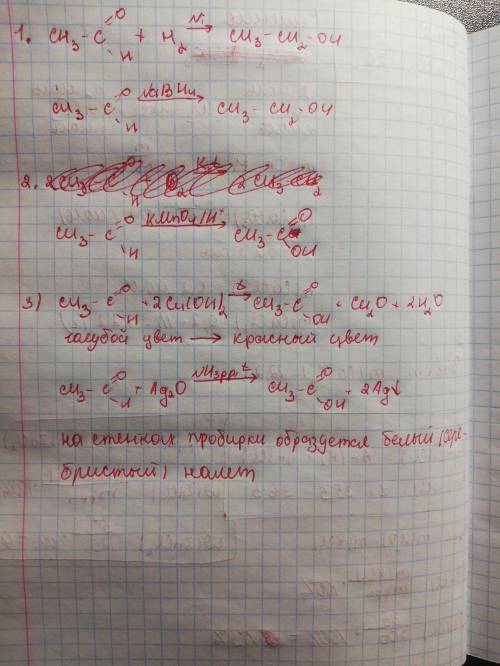 1. CH3-C=O H + H2 Ni → CH3-CH2-OH
CH3-C=O H NaBH4 → CH3-CH2-OH
2.
CH3-C=O H KMnO4/H+ → CH3-C=O OH
3) CH3-C=O H + 2Cu(OH)2 t → CH3-C=O OH + Cu2O + 2H2O
голубой цвет → красный цвет
CH3-C=O H + Ag2O NH3 р-р, t → CH3-C=O OH + 2Ag↓
на стенках пробирки образдется белый (сере-
бристый) налет